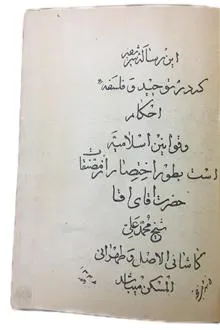 این رساله شریفه
که در توحید و فلسفه
احکام
و قوانین اسلامیه
است بطور اختصار از مصنفات
حضرت آقای آقا
شیخ محمد علی
کاشانی الاصل و طهرانی
المسکن میباشد